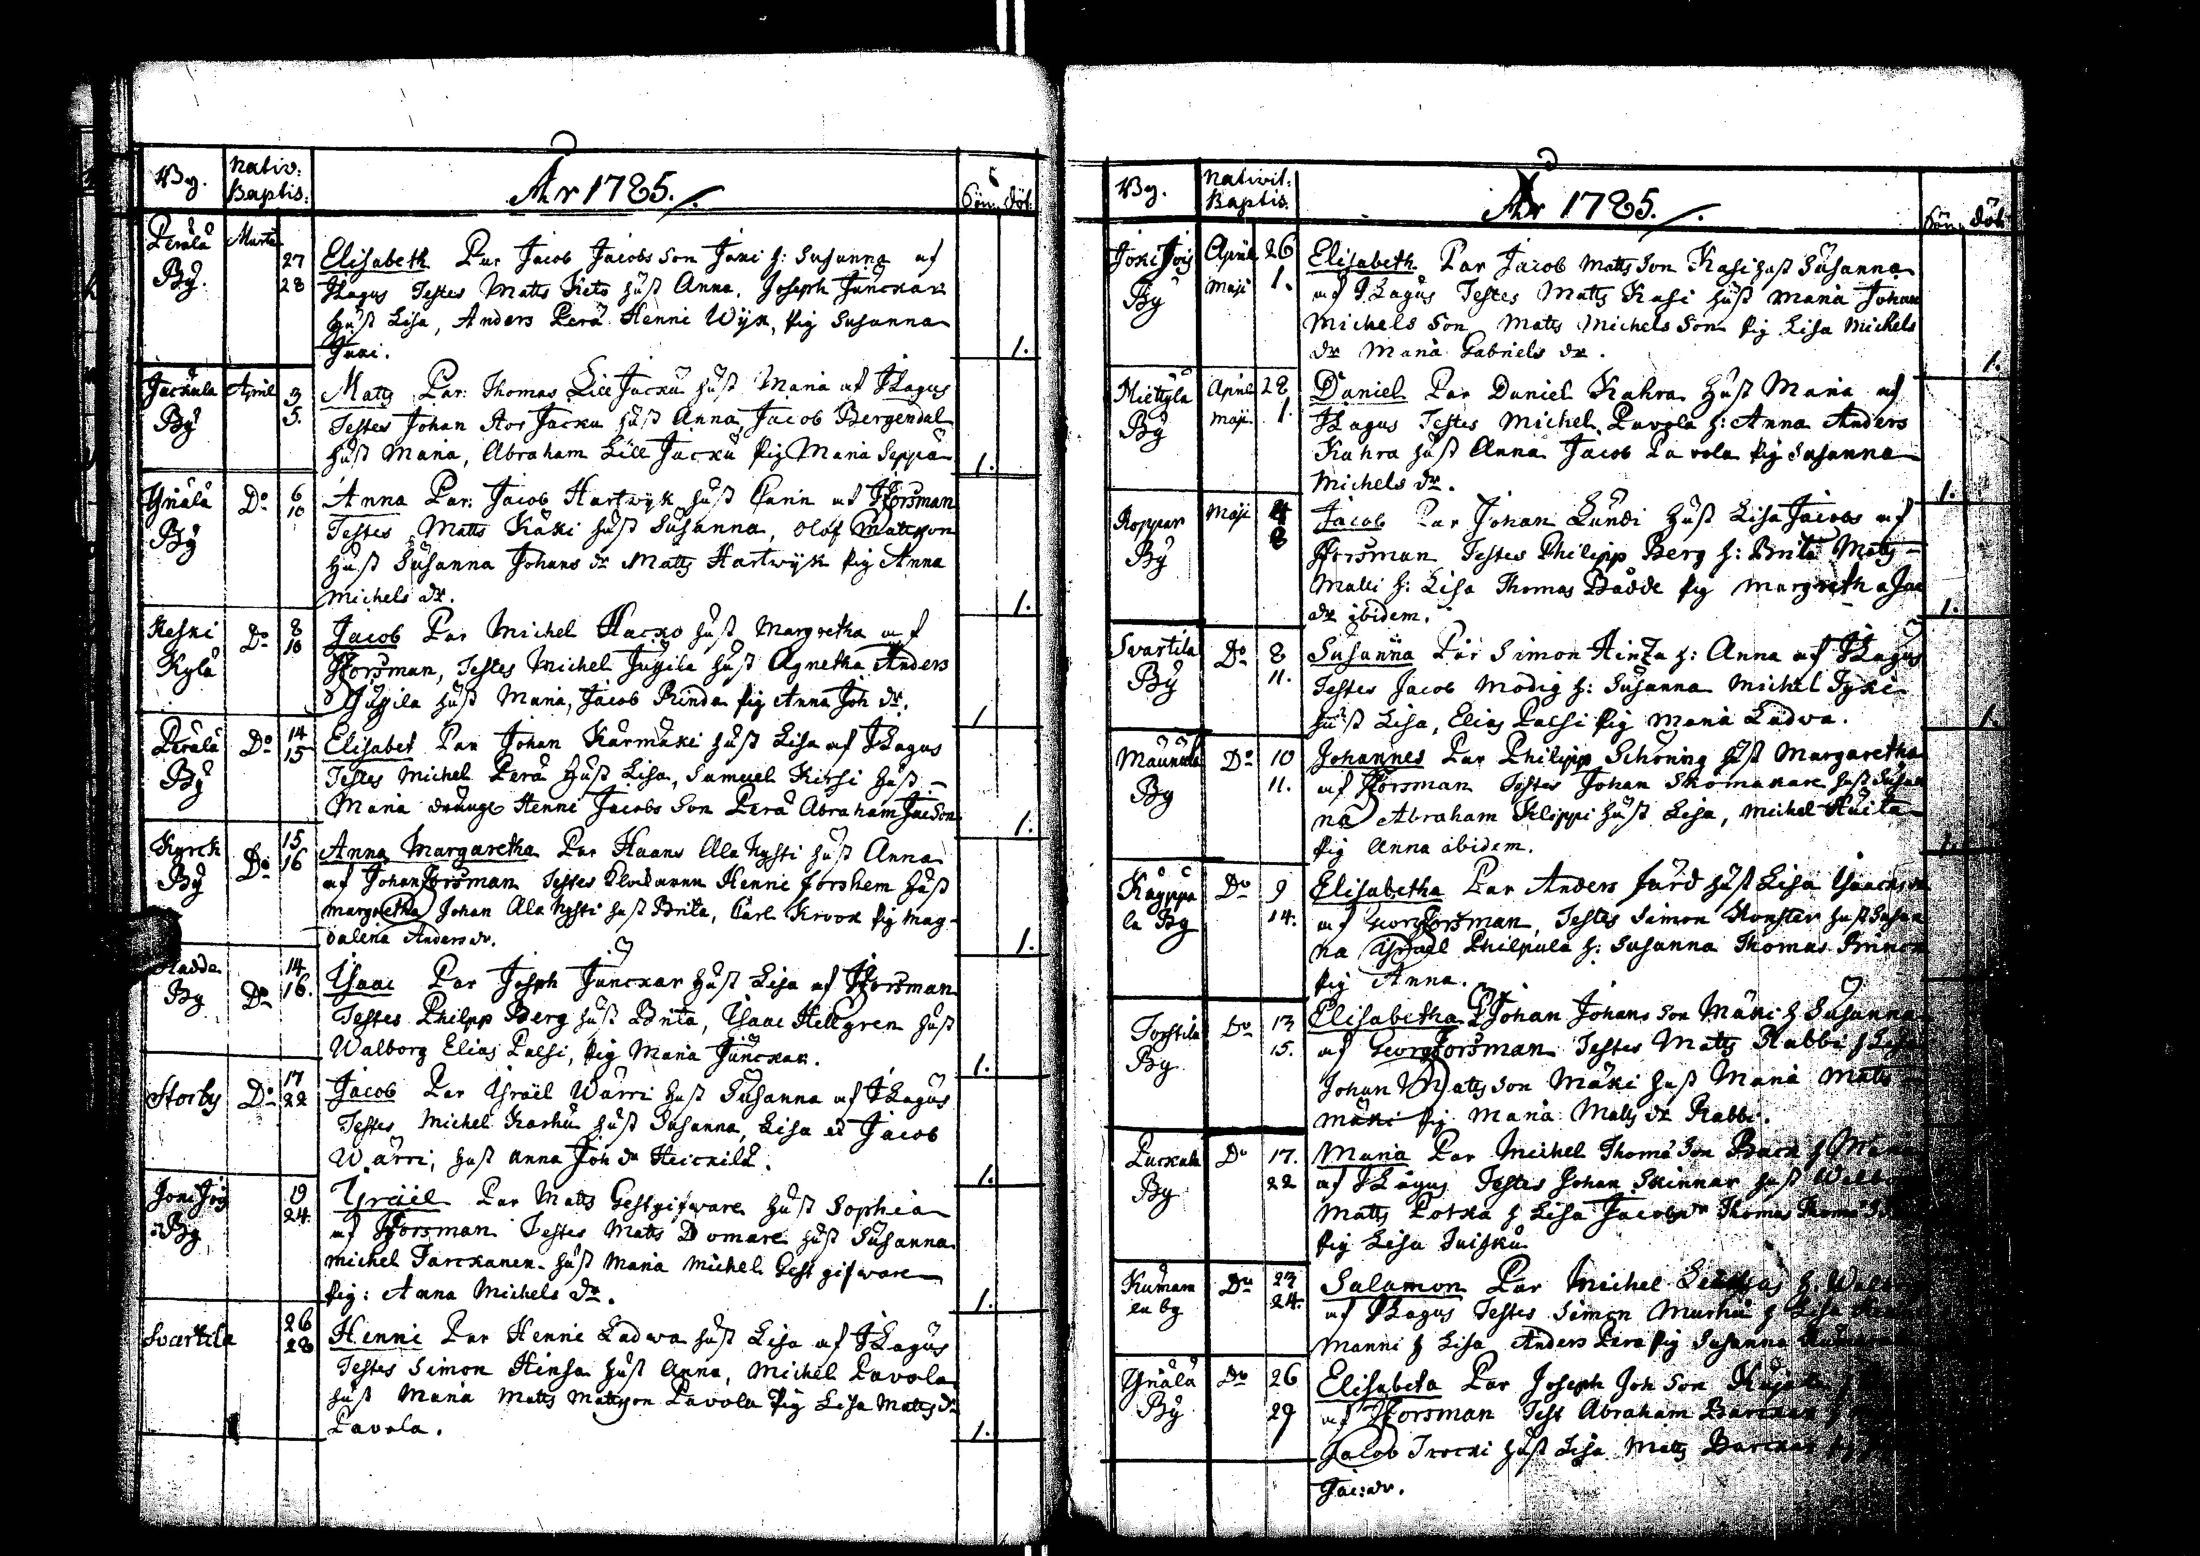 By. Nativ: Baptis: År 1785. Sön. döt:
Perälä By. Marti 27 28
Elisabeth Par Jacob Jacobs Son Jäki h: Susanna af
J Lagus Testes Matts Kieto hust Anna, Joseph Junckar
hust Lisa, Anders Perä Henne Wijk, pig Susanna
Jäki. 1.
Juckula By April 3 5.
Matts Par: Thomas Lill Jucku hust Maria af J Lagus
Testes Johan Stor Jucku hust Anna, Jacob Bergendal
hust Maria, Abraham Lill Jucku pig Maria Seppä 1.
Ynälä By Do 6 10
Anna Par: Jacob Hartwyk hust Carin af Forsman
Testes Matts Käki hust Susanna, Olof Mattsson
hust Susanna Johans dr Matts Hartwyk pig Anna
Michels dr. 1.
Keski Kylä Do 8 10
Jacob Par Michel Hacko hust Margretha af
Forsman, Testes Michel Jugila hust Agnetha Anders
Jugila hust Maria, Jacob Rinda pig Anna Joh dr. 1
Perälä By Do 14 15
Elisabet Par Johan Kärmäki hust Lisa af J Lagus
Testes Michel Perä hust Lisa, Samuel Kirsi hust
Maria dränge Henne Jacobs Son Perä Abraham Jac Son 1.
Kyrck By Do 15 16
Anna Margaretha Par Haans Ala Kysti hust Anna
af Johan Forsman Testes Henne Forshem hust
Margretha Johan Ala Kysti hust Brita, Carl Krook pig Mag-
dalena Anders dr. 1.
By Do 14 16.
Ysaac Par Joseph Junckar hust Lisa af Forsman
Testes Philpp Berg hust Brita, Ysaac Hellgren hust
Walborg Elias Palsi, pig Maria Junckar. 1.
Storby Do 17 22
Jacob Par Ysräel Wärri hust Susanna af J Lagus
Testes Michel Karhu hust Susanna, Lisa et Jacob
Wärri, hust Anna Joh dr Heickilä. 1.
Joki Joij By 19 24.
Ysräel Par Matts Gestgifware hust Sophia
af Forsman Testes Matts Domare hust Susanna
Michel Tarckanen hust Maria Michel Gestgifware
pig: Anna Michels dr. 1.
Svartila 26 28
Henne Par Henne Ladwa hust Lisa af J Lagus
Testes Simon Hinsa hust Anna, Michel Pavola
hust Maria Matts Mattsson Pavola pig Lisa Matts dr
Pavola. 1.
By. Nativit: Baptis. År 1785. Sön. döt
Joki Joij By April 26 Maji 1.
Elisabeth Par Jacob Matts Son Kasi hust Susanna
af J Lagus Testes Matts Kasi hust Maria Johan
Michels Son Matts Michels Son pig Lisa Michels
dr Maria Gabriels dr. 1.
Niettylä By April 28 Maji 1
Daniel Par Daniel Kahra hust Maria af
J Lagus Testes Michel Pavola h: Anna Anders
Kahra hust Anna Jacob Pavola pig Susanna
Michels dr. 1.
Koppar By Maji 4 8
Jacob Par Johan Lundi hust Lisa Jacobs af
Forsman Testes Philipp Berg h: Brita Matts
Malli h: Lisa Thomas Bådde pig Margreth a Jac
dr ibidem. 1.
Svartila By Do 8 11.
Susanna Par Simon Hinza h: Anna af J Lagus
Testes Jacob Modig h: Susanna Michel Tyki
hust Lisa, Elias Palsi pig Maria Ladwa. 1.
Maunula By Do 10 11.
Johannes Par Philipp Schöning hust Margaretha
af Forsman Testes Johan Skomakare hust Susan
na Abraham Klippi hust Lisa, Michel Huita
pig Anna ibidem. 1.
Käyppä la By Do 9 14.
Elisabetha Par Anders Färd hust Lisa
af Georg Forsman, Testes Simon Konster hust Susan
na Ysrael Philpula h: Susanna Thomas
pig Anna.
Torstila By Do 13 15.
Elisabetha Pr Johan Johans Son Mäki h Susanna
af Georg Forsman Testes Matts Rabbi h Lisa
Johan Matts Son Mäki hust Maria Matts
Mäki pig Maria Matts dr Rabbi.
Puckala By Do 17. 22
Maria Par Michel Thoma Son Back h Maria
af J Lagus Testes Johan Skinnar hust
Matts Potka h Lisa Jacobs dr Thomas
pig Lisa
Kumam la by Do 23 24.
Salamon Par Michel h.
af J Lagus Testes Simon Murhu h Lisa
Manni h Lisa Anders Pera pig Susanna
Ynälä By Do 26 29
Elisabeta Par Joseph Joh Son
af Forsman Test Abraham Barckar
Jacob hust Lisa Matts Barckar
Jac: dr.